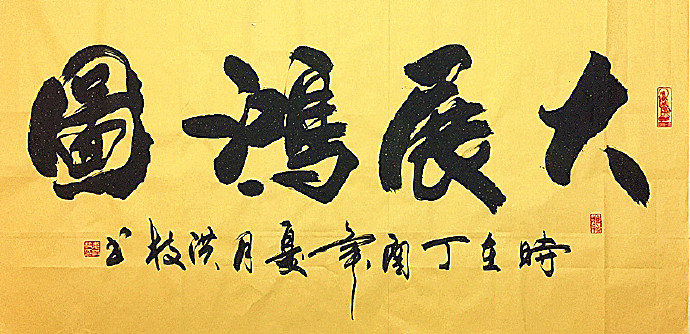 大展鴻圖
時在丁酉年夏月洪枝书